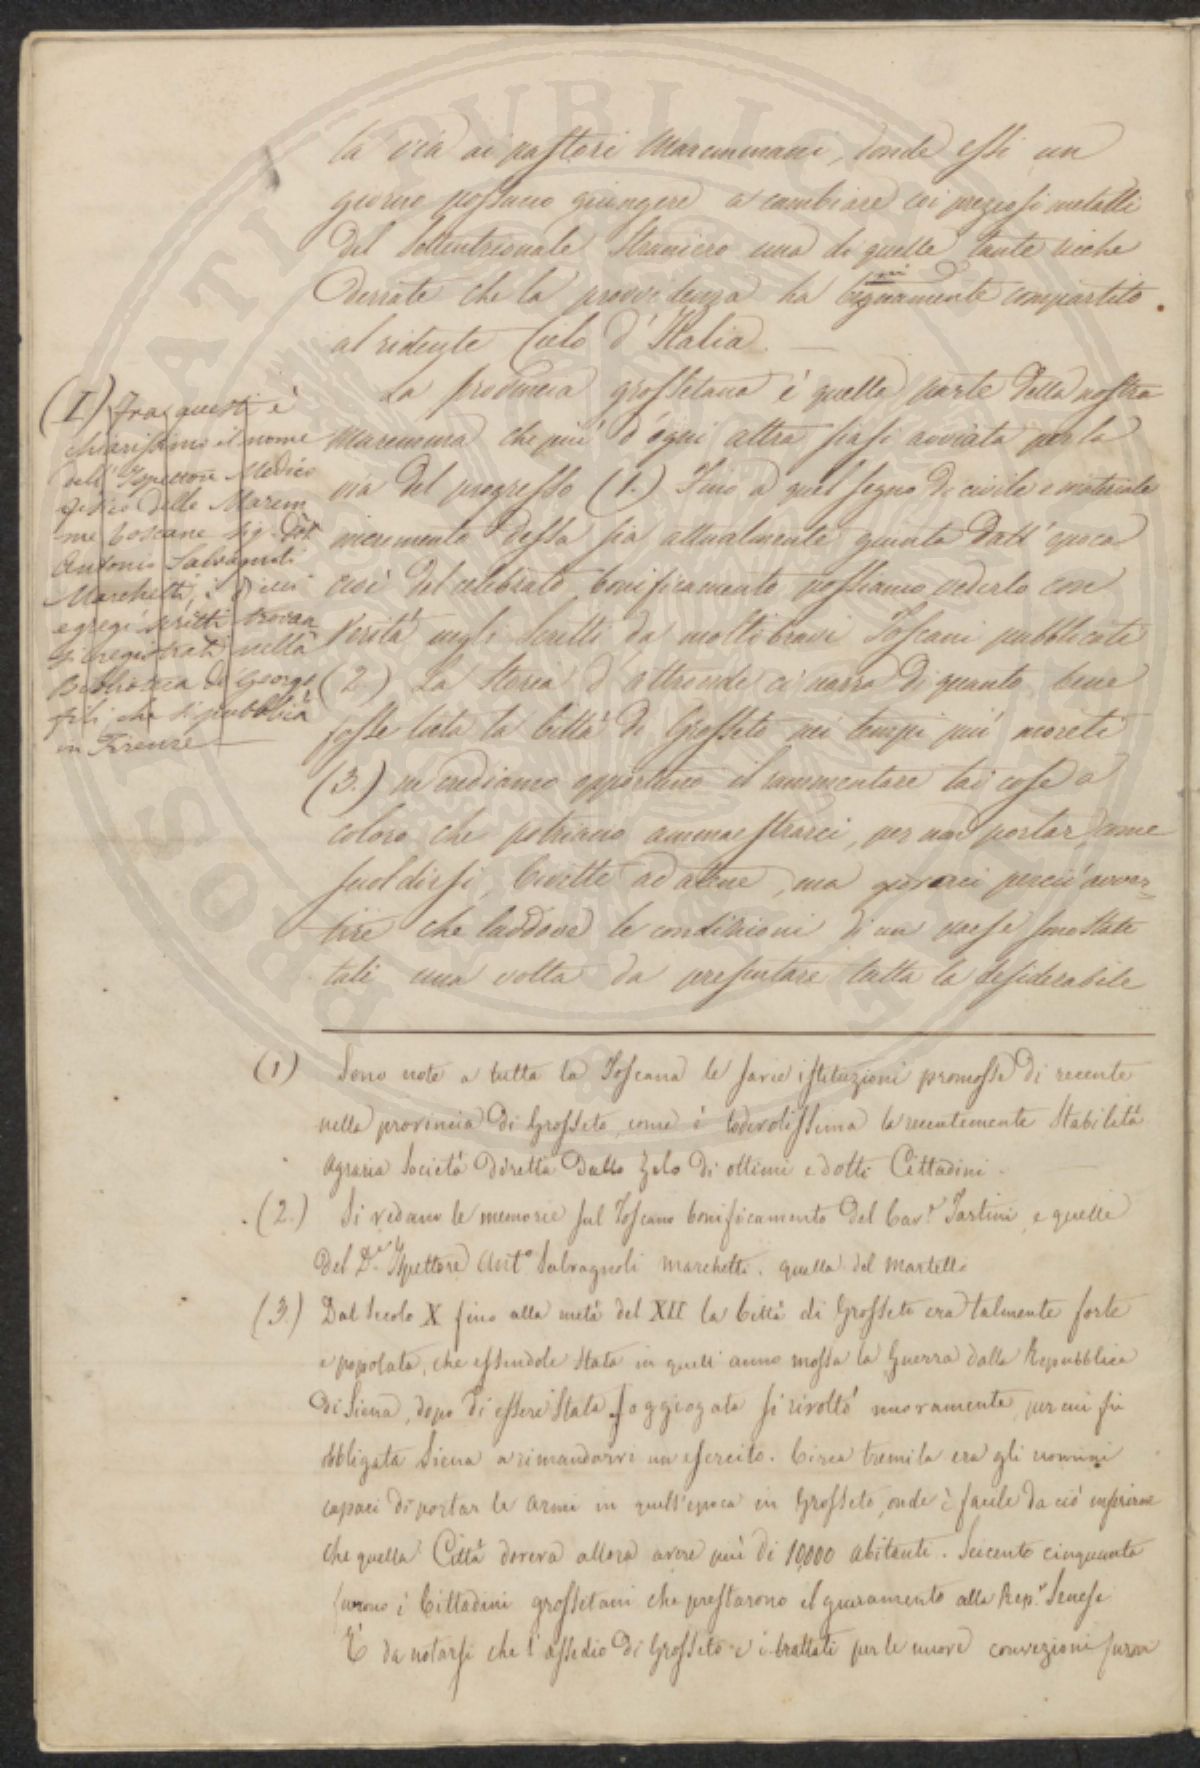 la via ai pastori Maremmani, donde essi un
giorno possano giungere a cambiare coi preziosi metalli
del Settentrionale Straniero una di quelle tante ricche
derrate che la provvidenza ha benignamente compartito
al ridente Cielo d'Italia. —
La provincia grossetana è quella parte della nostra
Maremma che più d'ogni altra siasi avviata per la
via del progresso (1.) Fino a quel segno di civile e materiale
incremento dessa sia attualmente giunta dall'epoca
cioè del celebrato bonificamento possiamo vederlo con
verità negli Scritti da molti bravi Toscani pubblicati
(2.) La Storia d'altronde ci narra di quanto bene
fosse lieta la Città di Grosseto nei tempi più
(3.) crediamo opportuno il rammentare tai cose a
coloro che potriano ammaestrarci, per non portar, come
suol dirsi, Civette ad atene, ma giovarci perciò avver-
tire che laddove le condizioni di un paese sono state
tali una volta da presentare tutta la desiderabile
(I) fra questi è
chiarissimo il nome
dell'Ispettore Medico
fisico delle Marem
me toscane Sig. Dot.
Antonio Salvagnoli
Marchetti, i di cui
egregi scritti trovan
si registrati nella
Biblioteca de' Georgo
fili che si pubblica
in Firenze —
(1) Sono note a tutta la Toscana le savie istituzioni promosse di recente
nella provincia di Grosseto, come è lodevolissima la recentemente Stabilita
Agraria Società diretta dallo Zelo di ottimi e dotti Cittadini.
(2.) Si vedano le memorie sul Toscano bonificamento del Cav.r Tartini, e quelle
del D.r Ispettore Ant.o Salvagnoli Marchetti. quella del Martelli
(3.) Dal Secolo X fino alla metà del XII la Città di Grosseto era talmente forte
e popolata, che essendole stata in quell'anno mossa la Guerra dalla Repubblica
di Siena, dopo di essere Stata soggiogata si rivoltò nuovamente, per cui fu
obbligata Siena a rimandarvi un esercito. Circa tremila era gli uomini
capaci di portar le armi in quell'epoca in Grosseto, onde è facile da ciò inferirne
che quella Città doveva allora avere più di 10,000 abitanti. Seicento cinquanta
furono i Cittadini grossetani che prestarono il giuramento alla Rep.a Senese
È da notarsi che l'assedio di Grosseto e i trattati per le nuove convezioni furon